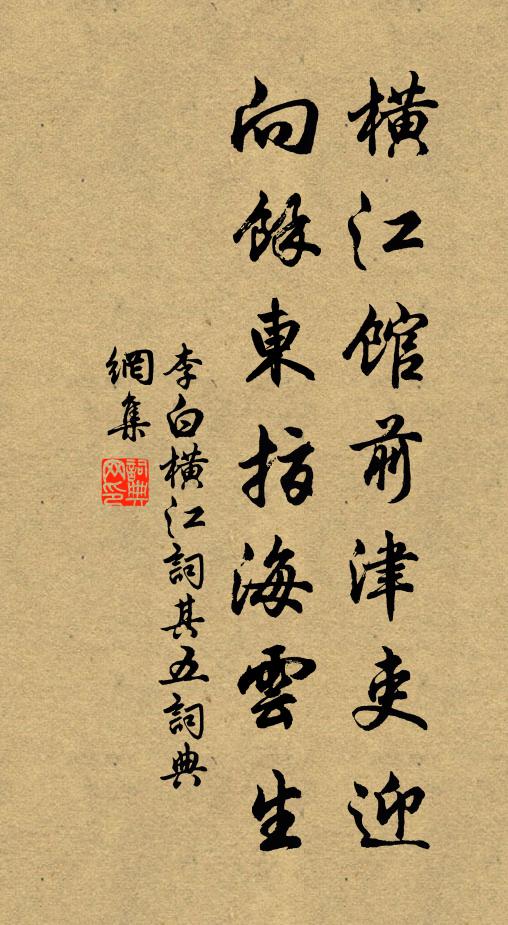 橫江館前津吏迎
向餘東指海雲生
李白橫江詞其五詞典
網集
詞典
网印